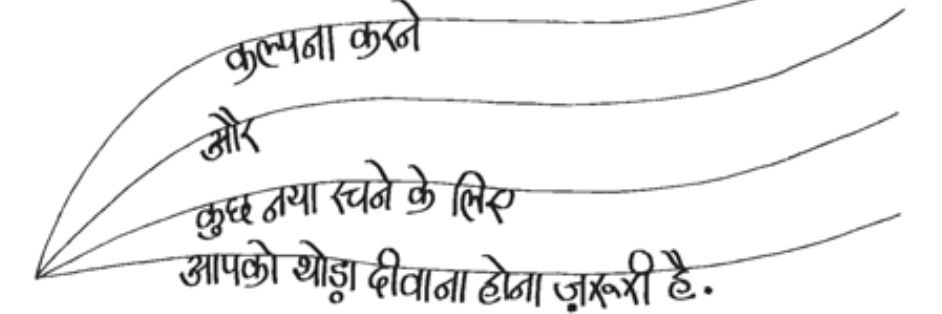 कल्पना करने
और
कुछ नया रचने के लिए
आपको थोड़ा दीवाना होना ज़रूरी है.